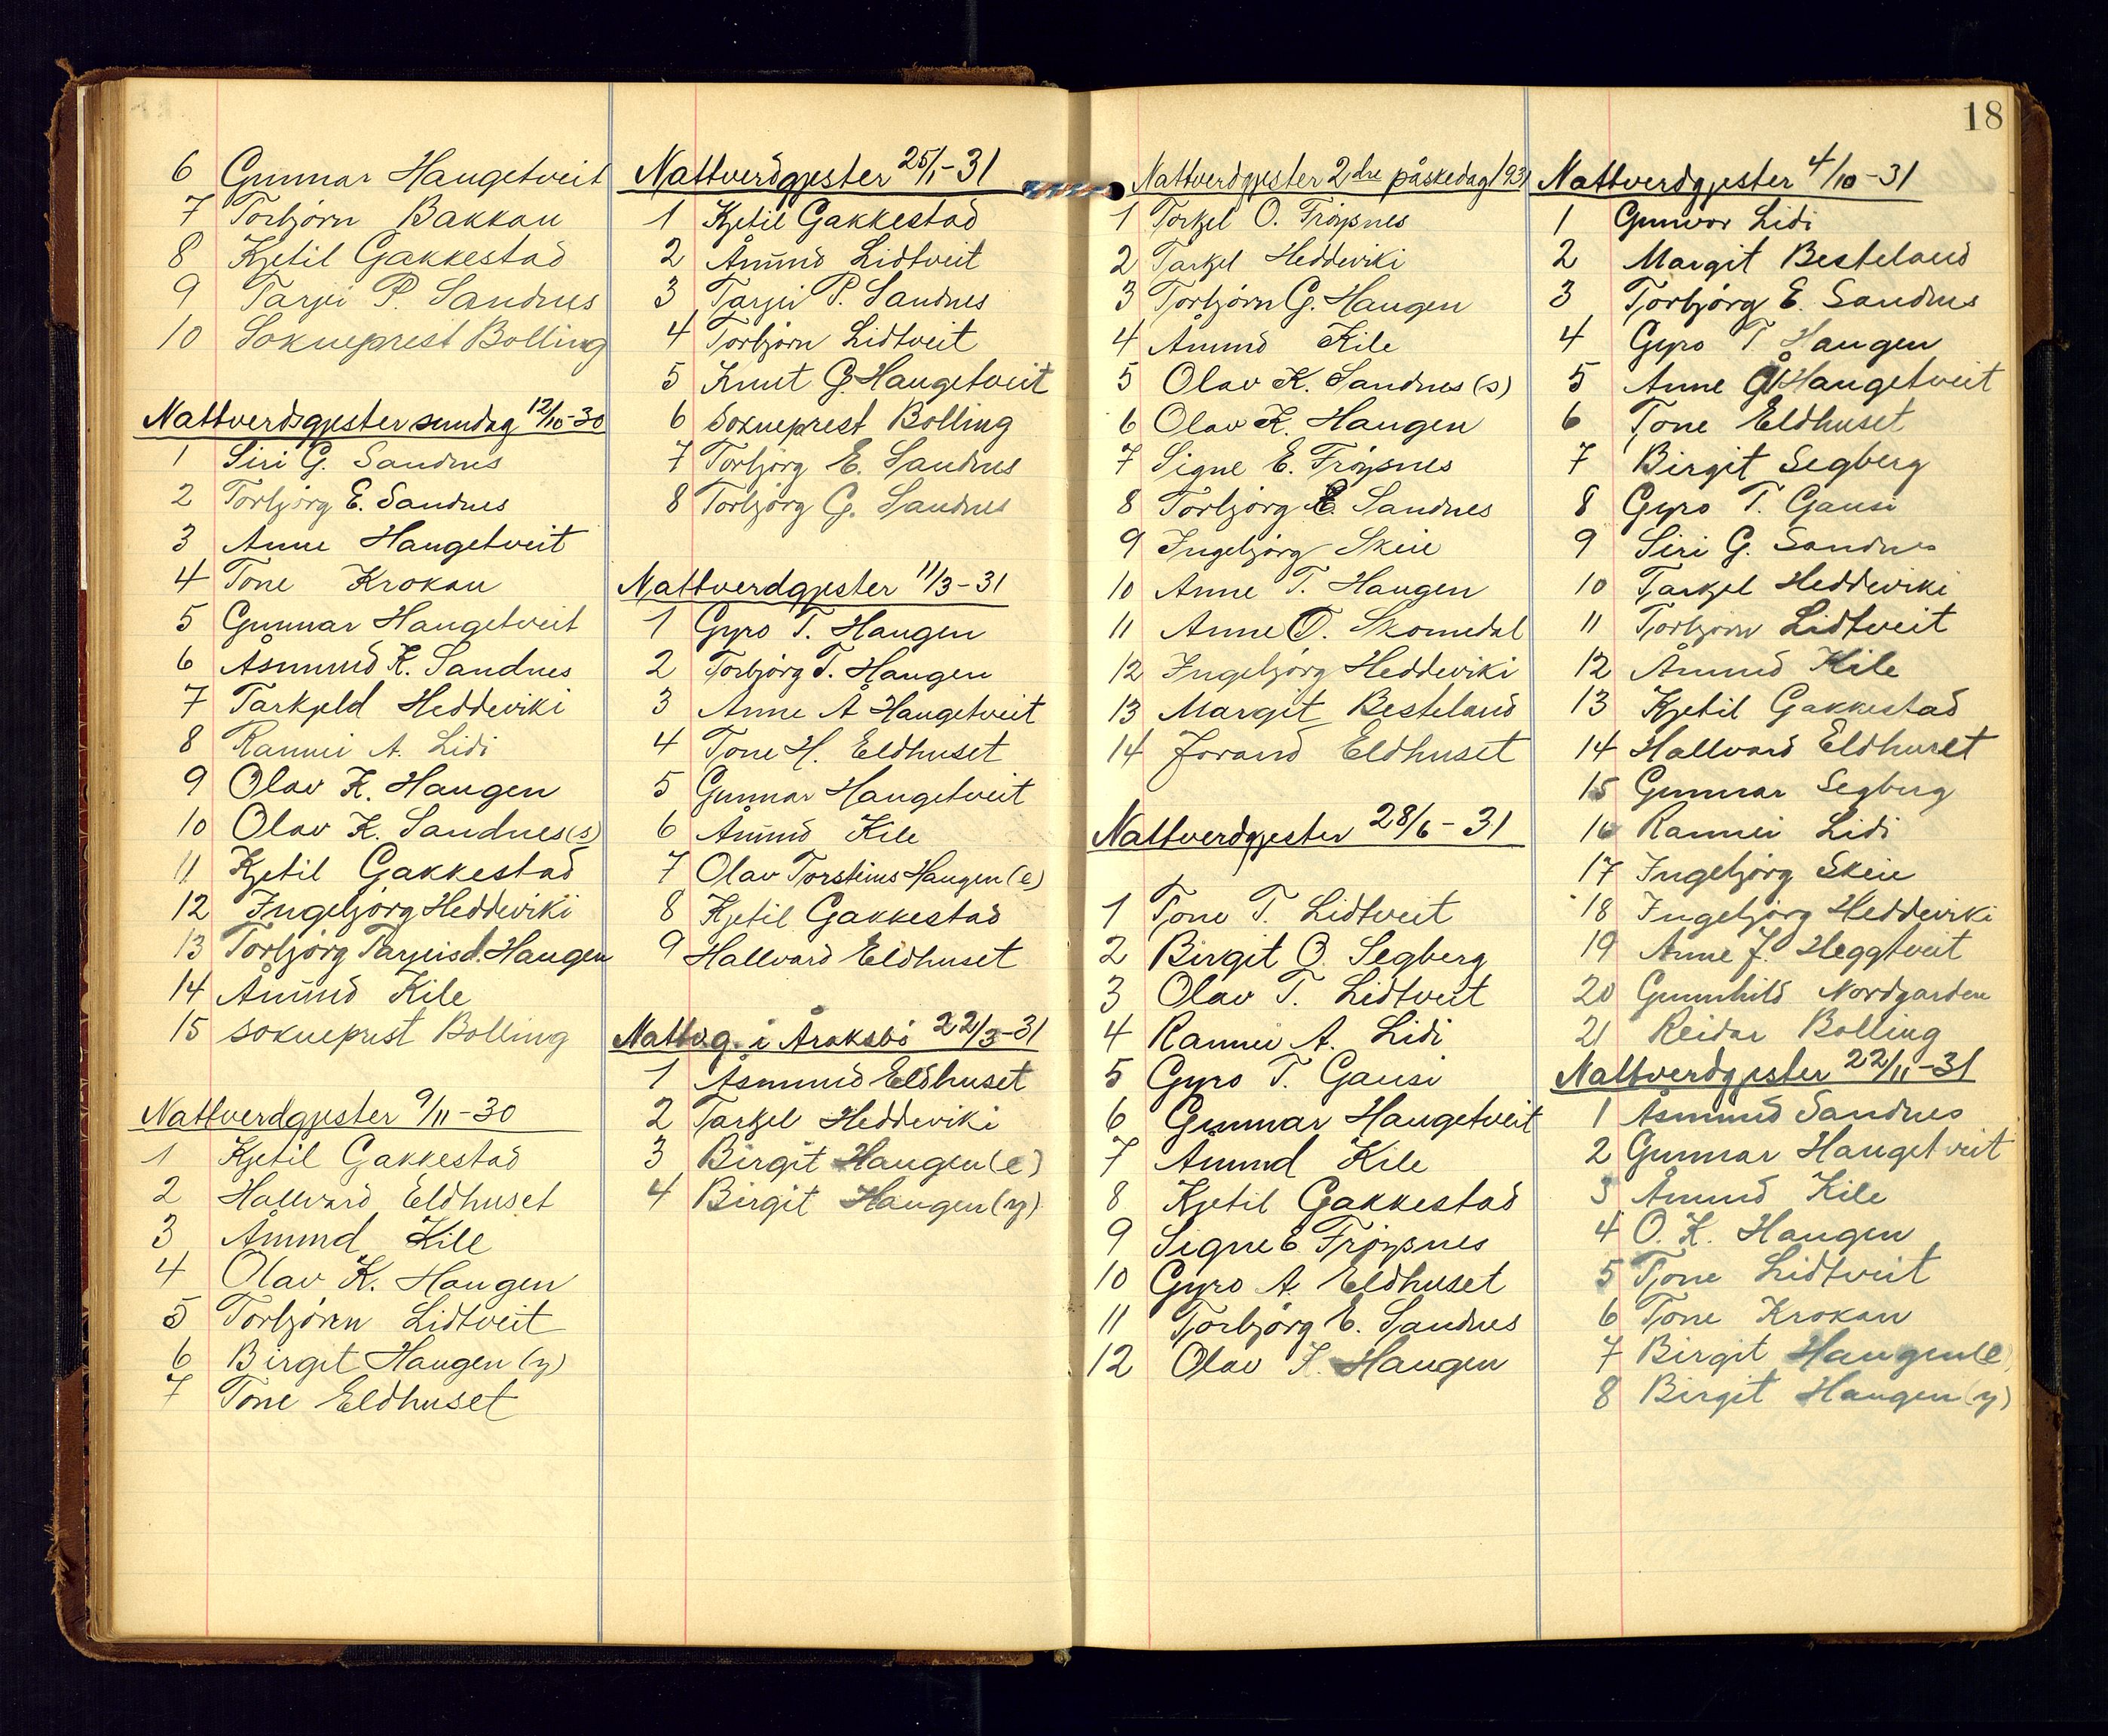 6 Gunnar Haugetveit
7 Torbjørn Bakkan
8 Kjetil Gakkestad
9 Tarjei P. Sandnes
10 Sokneprest Bolling
Nattverdsgjester sundag 12/10-30
1 Siri G. Sandnes
2 Torbjörg E. Sandnes
3 Anne Haugetveit
4 Tone Krokan
5 Gunnar Haugetveit
6 Åsmund K. Sandnes
7 Tarkjeld Heddeviki
8 Rannei A. Lidi
9 Olav K. Haugen
10 Olav K. Sandnes(s)
11 Kjetil Gakkestad
12 Ingebjörg Heddeviki
13 Torbjörg Tarjeisd. Haugen
14 Åmund Kile
15 sokneprest Bolling
Nattverdgjester 9/11-30
1 Kjetil Gakkestad
2 Hallvard Eldhuset
3 Åmund Kile
4 Olav K. Haugen
5 Torbjörn Lidtveit
6 Birgit Haugen (y)
7 Tone Eldhuset
Nattverdgjester 25/1-31
1 Kjetil Gakkestad
2 Åmund Lidtveit
3 Tarjei P. Sandnes
4 Torbjørn Lidtveit
5 Knut G. Haugetveit
6 Sokneprest Bolling
7 Torbjörg E. Sandnes
8 Torbjörg G. Sandnes
Nattverdgjester 11/3-31
1 Gyro T. Haugen
2 Torbjörg T. Haugen
3 Anne Å Haugetveit
4 Tone H. Eldhuset
5 Gunnar Haugetveit
6 Åmund Kile
7 Olav Torsteins Haugen (e)
8 Kjetil Gakkestad
9 Hallvard Eldhuset
Nattv.g. i Åraksbö 22/3-31
1 Åsmund Eldhuset
2 Tarkjel Heddeviki
3 Birgit Haugen (e)
4 Birgit Haugen (y)
18
Nattverdgjester 2dre påskedag 1931
1 Torkjel O. Fröysnes
2 Tarkjel Heddeviki
3 Torbjörn G. Haugen
4 Åmund Kile
5 Olav K. Sandnes (s)
6 Olav K. Haugen
7 Signe E. Fröysnes
8 Torbjörg E. Sandnes
9 Ingebjörg Skeie
10 Anne T. Haugen
11 Anne T. Skomedal
12 Ingebjörg Heddeviki
13 Margit Besteland
14 Jorand Eldhuset
Nattverdgjester 28/6-31
1 Tone T. Lidtveit
2 Birgit O. Segberg
3 Olav T. Lidtveit
4 Rannei A. Lidi
5 Gyro T. Gausi
6 Gunnar Haugetveit
7 Åmund Kile
8 Kjetil Gakkestad
9 Signe E Fröysnes
10 Gyro A. Eldhuset
11 Torbjörg E. Sandnes
12 Olav K. Haugen
Nattverdgjester 4/10-31
1 Gunvor Lidi
2 Margit Besteland
3 Torbjörg E. Sandnes
4 Gyro T. Haugen
5 Anne Å Haugetveit
6 Tone Eldhuset
7 Birgit Segberg
8 Gyro T. Gausi
9 Siri G. Sandnes
10 Tarkjel Heddeviki
11 Torbjörn Lidtveit
12 Åmund Kile
13 Kjetil Gakkestad
14 Hallvard Eldhuset
15 Gunnar Segberg
16 Rannei Lidi
17 Ingebjörg Skeie
18 Ingebjörg Heddeviki
19 Anne J. Heggtveit
20 Gunnhild Nordgarden
21 Reidar Bolling
Nattverdgjester 22/11-31
1 Åsmund Sandnes
2 Gunnar Haugetveit
3 Åmund Kile
4 O. K. Haugen
5 Tone Lidtveit
6 Tone Krokan
7 Birgit Haugen (e)
8 Birgit Haugen (y)